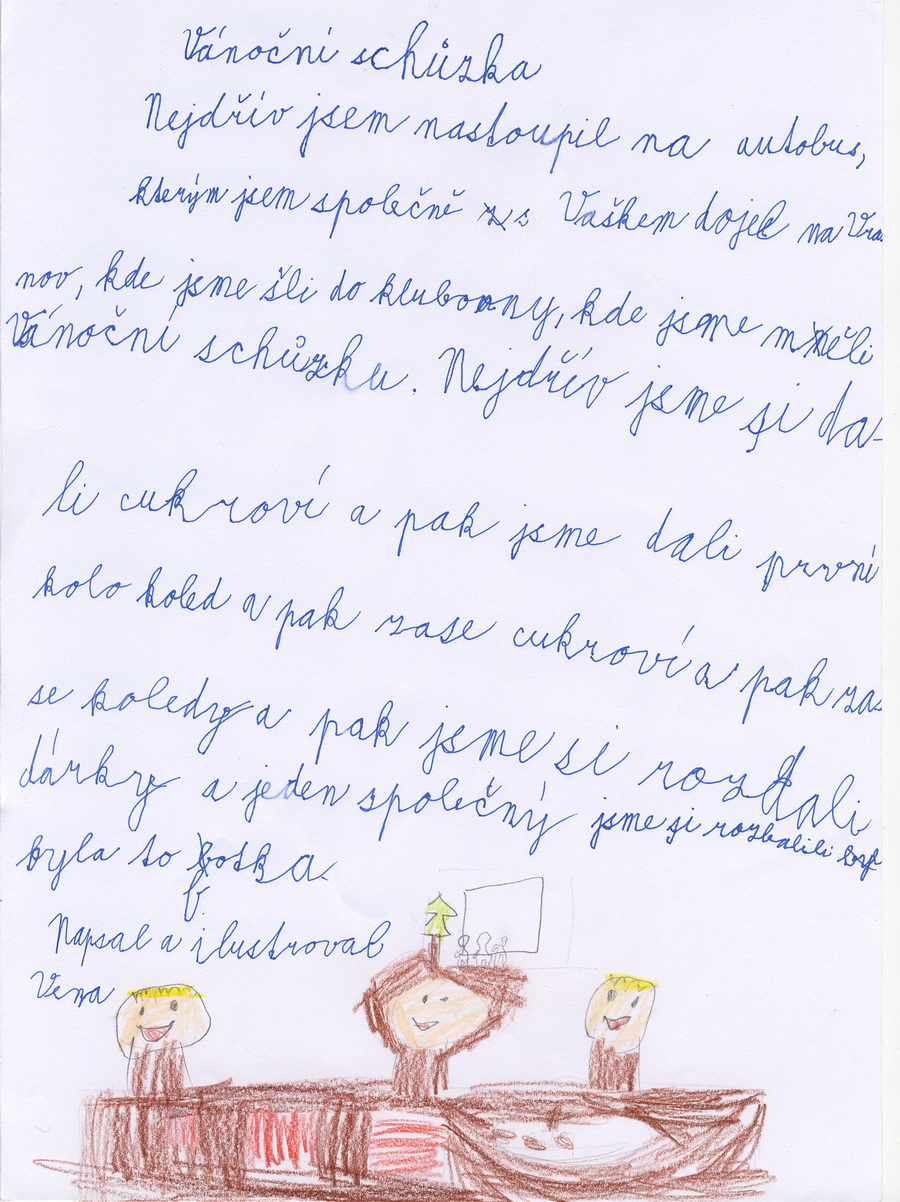 Vánoční schůzka
Nejdřív jsem nastoupil na autobus,
kterým jsem společně s Vaškem dojel na Vra-
nov, kde jsme šli do klubovny, kde jsme měli
Vánoční schůzku. Nejdřív jsme si da-
li cukroví a pak jsme dali první
kolo koled a pak zase cukroví a pak za-
se koledy a pak jsme si rozdali
dárky a jeden společný jsme si rozbalili
byla to fotka
Napsal a ilustroval
Vena